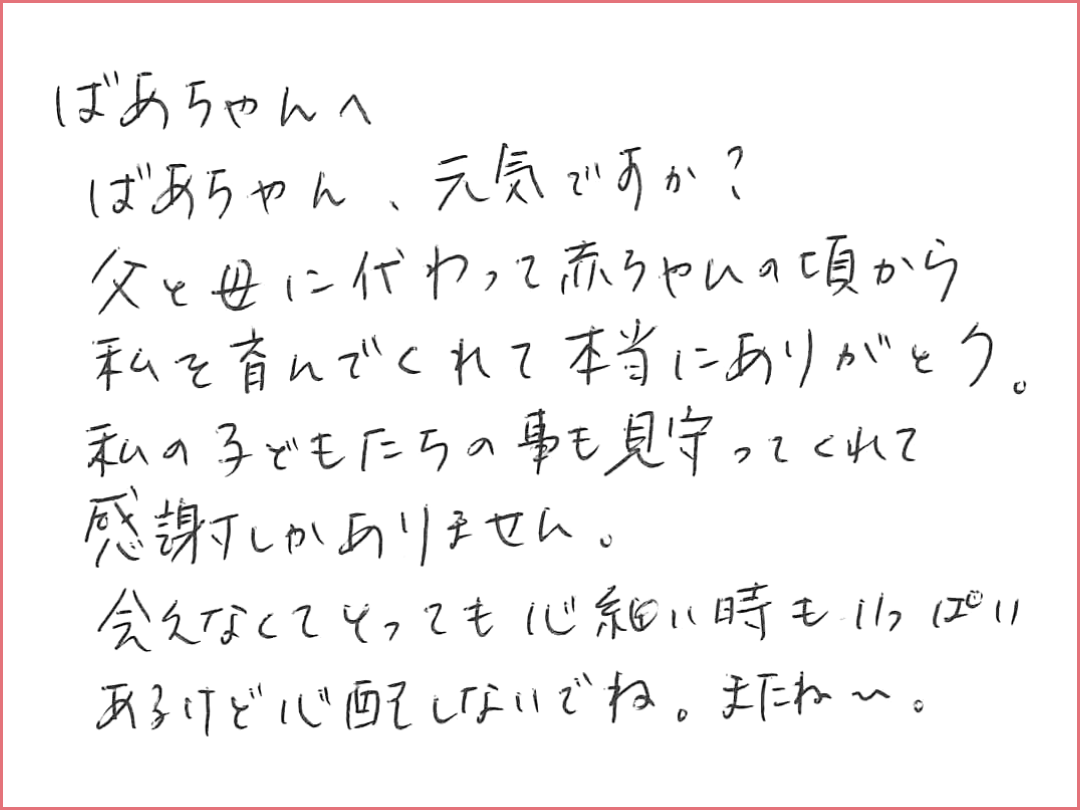 ばあちゃんへ
ばあちゃん、元気ですか？
父と母に代わって赤ちゃんの頃から
私を育んでくれて本当にありがとう。
私の子どもたちの事も見守ってくれて
感謝しかありません。
会えなくてとっても心細い時もいっぱい
あるけど心配しないでね。またね〜。